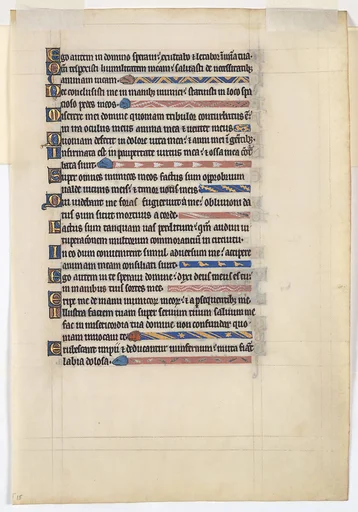 Ego autem in domino speraui: exultabo & letabor in mia tua.
Qm respexisti humilitatem meam: saluasti de necessitatib;
animam meam.
Nec conclusisti me in manib; inimici: statuisti in loco spa
cioso pedes meos.
Miserere mei domine quoniam tribulor: conturbatus e
in ira oculus meus anima mea & uenter meus.
Quoniam defecit in dolore uita mea: & anni mei i gemitib;
Infirmata est in paupertate uirtus mea: & ossa mea con
turbata sunt.
Super omnes inimicos meos factus sum opprobrium
ualde uicinis meis: & timor notis meis.
Qui uidebant me foras fugierunt a me: obliuioni da
tus sum sicut mortuus a corde.
Factus sum tanquam uas perditum: qm audiui ui
tuperationem multorum commorancium in circuitu.
In eo dum conuenirent simul aduersum me: accipere
animam meam consiliati sunt.
Ego autem in te speraui domine: dixi deus meus es tu:
in manibus tuis sortes mee.
Eripe me de manu inimicor meor: & a psequentib; me.
Illustra faciem tuam super seruum tuum saluum me
fac in misericordia tua domine non confundar quo
niam inuocaui te.
Erubescant impii & deducantur in infernum: muta fiant
labia dolosa.